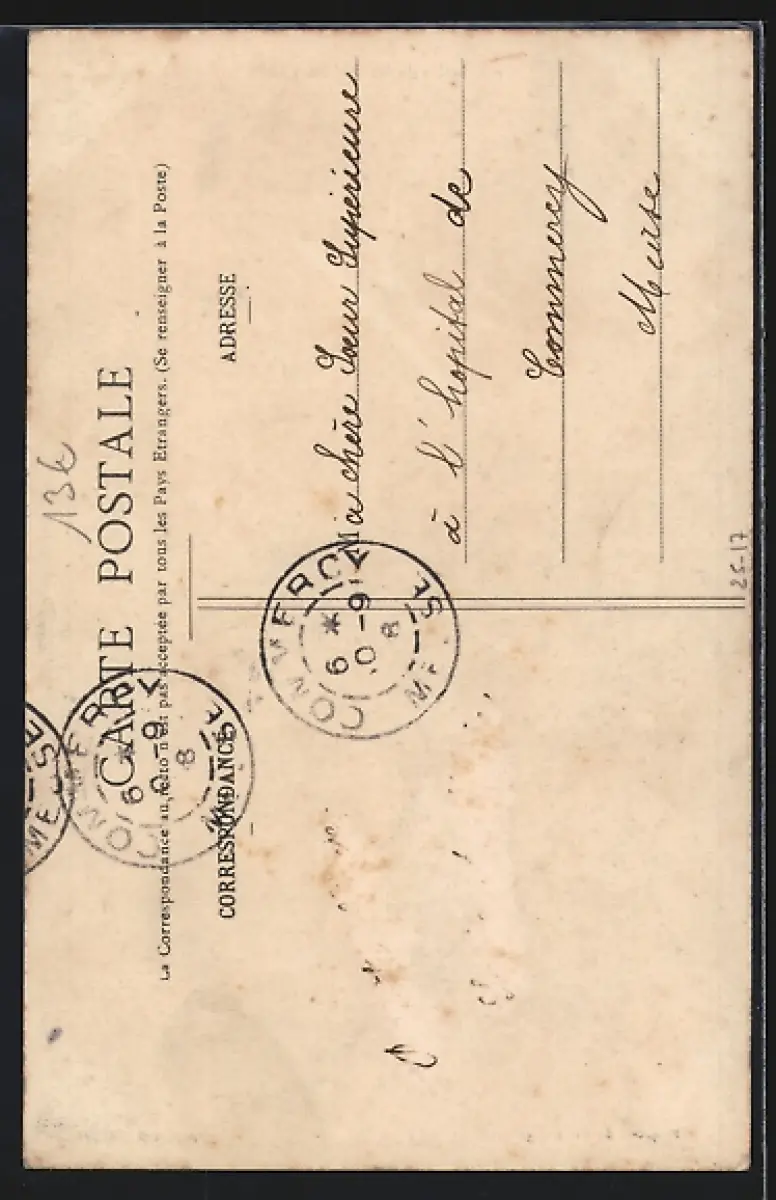 13k
CARTE POSTALE
La Correspondance au recto n'est pas acceptée par tous les Pays Etrangers. (Se renseigner à la Poste)
CORRESPONDANCE
ADRESSE
Ma chère Sœur Supérieure
à l'hopital de
Commercy
Meuse
COMMERCY
MEUSE
COMMERCY
MEUSE
MEUSE
25-17